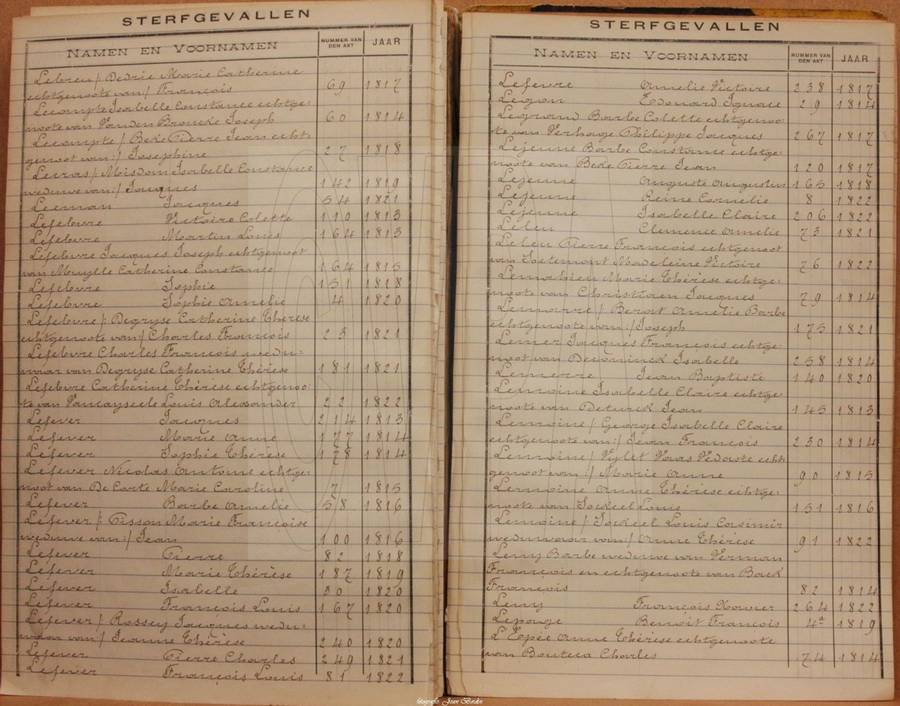 STERFGEVALLEN
NAMEN EN VOORNAMEN NUMMER VAN DEN AKT JAAR
Lebreu / Dedrie Marie Catherine
echtgenoote van / François 69 1817
Lecompte Isabelle Constance echtge-
noote van Vanden Broucke Joseph 60 1814
Lecompte / Beke Pierre Jean echt-
genoot van / Josephine 27 1818
Lerras / Moisdom Isabelle Constance
weduwe van / Jacques 142 1819
Leeman Jacques 54 1821
Lefebvre Victoire Colette 110 1813
Lefebvre Martin Louis 164 1813
Lefebvre Jacques Joseph echtgenoot
van Muylle Catherine Constance 164 1815
Lefebvre Sophie 151 1818
Lefebvre Sophie Amelie 4 1820
Lefebvre / Degryse Catherine Thérèse
echtgenoote van / Charles François 23 1821
Lefebvre Charles François wedu-
waar van Degryse Catherine Thérèse 181 1821
Lefebvre Catherine Thérèse echtgenoo-
te van Vancayseele Louis Alexander 22 1822
Lefever Jacques 214 1813
Lefever Marie Anne 177 1814
Lefever Sophie Thérèse 178 1814
Lefever Nicolas Antoine echtge-
noot van De Corte Marie Caroline 7 1815
Lefever Barbe Amelie 58 1816
Lefever / Pisson Marie Françoise
weduwe van / Jean 100 1816
Lefever Pierre 82 1818
Lefever Marie Thérèse 187 1819
Lefever Isabelle 30 1820
Lefever François Louis 167 1820
Lefever / Rossey Jacques wedu-
waar van / Jeanne Thérèse 240 1820
Lefever Pierre Charles 249 1821
Lefever François Louis 81 1822
STERFGEVALLEN
NAMEN EN VOORNAMEN NUMMER VAN DEN AKT JAAR
Lefevre Amelie Victoire 238 1817
Legion Edouard Ignace 29 1814
Legrand Barbe Colette echtgenoo-
te van Verhage Philippe Jacques 267 1817
Lejeune Barbe Constance echtge-
noote van Beke Pierre Jean 120 1817
Lejeune Auguste Augustin 165 1818
Lejeune Reine Cornelie 8 1822
Lejeune Isabelle Claire 206 1822
Leleu Clemence Amelie 73 1821
Leleu Pierre François echtgenoot
van Madeleine Victoire 76 1822
Lemahieu Marie Thérèse echtge-
noote van Christiaen Jacques 79 1814
Lemaire / Benoit Amelie Barbe
echtgenoote van / Joseph 175 1821
Lemer Jacques Francois echtge-
noot van Deconninck Isabelle 258 1814
Lemerre Jean Baptiste 140 1820
Lemoine Isabelle Claire echtge-
noote van Deturck Jean 145 1813
Lemoine / George Isabelle Claire
echtgenoote van / Jean François 230 1814
Lemoine / Vylet Vaas Vedaste echt-
genoot van / Marie Anne 90 1815
Lemoine Anne Thérèse echtge-
noote van Sockeel Louis 151 1816
Lemoine / Sockeel Louis Casimir
weduwaar van / Anne Thérèse 91 1822
Leny Barbe weduwe van Herman
François en echtgenoote van Back
François 82 1814
Leny François Xavier 264 1822
Lepouge Benoit Francois 42 1819
L'Epée Anne Thérèse echtgenoote
van Bouteca Charles 74 1814